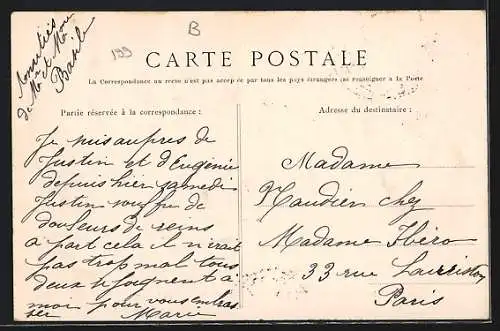 Amitiés
de Mr et Mme
Basile
199
B
CARTE POSTALE
La Correspondance au recto n'est pas acceptée par tous les pays étrangers (se renseigner à la Poste
Partie réservée à la correspondance :
Adresse du destinataire :
Je suis aupres de
Justin et d'Eugénie
depuis hier samedi
Justin souffre de
douleurs de reins
a part cela il n'irait
pas trop mal tous
deux se joignent a
moi pour vous embras
ser Marie
Madame
Naudier chez
Madame Ibéro
33 rue Lauriston
Paris